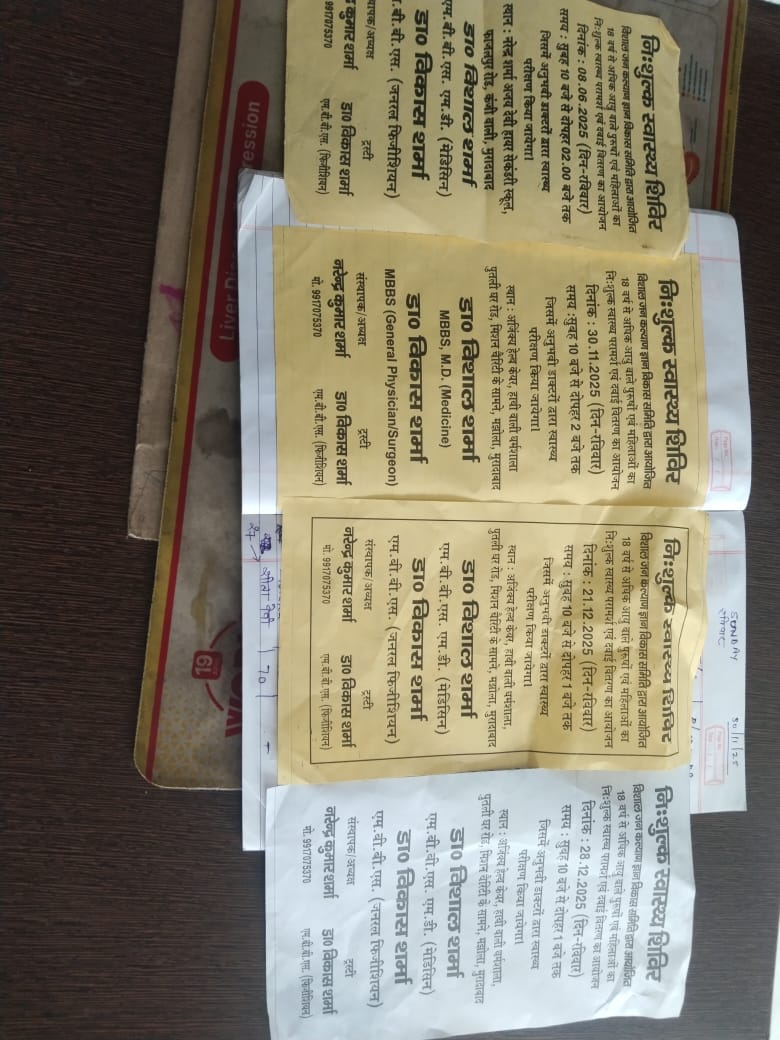 निःशुल्क स्वास्थ्य शिविर
विशाल जन कल्याण ज्ञान विकास समिति द्वारा आयोजित
18 वर्ष से अधिक आयु वाले पुरुषों एवं महिलाओं का
निःशुल्क स्वास्थ्य परामर्श एवं दवाई वितरण का आयोजन
दिनांक : 08.06.2025 (दिन-रविवार)
समय : सुबह 10 बजे से दोपहर 02.00 बजे तक
जिसमें अनुभवी डाक्टरों द्वारा स्वास्थ्य
परीक्षण किया जायेगा।
स्थान : नरेन्द्र शर्मा अजब देवी हायर सेकेंडरी स्कूल,
फाजलपुर रोड, मुरादाबाद
डा0 विशाल शर्मा
एम. बी. बी. एस. एम.डी. (मेडिसिन)
डा0 विकास शर्मा
.बी. बी. एस. (जनरल फिजीशियन)
स्थापक/अध्यक्ष
ट्रस्टी
कुमार शर्मा
डा0 विकास शर्मा
9917075370
एम.बी.बी.एस. (फिजीशियन)
निःशुल्क स्वास्थ्य शिविर
विशाल जन कल्याण ज्ञान विकास समिति द्वारा आयोजित
18 वर्ष से अधिक आयु वाले पुरुषों एवं महिलाओं का
निःशुल्क स्वास्थ्य परामर्श एवं दवाई वितरण का आयोजन
दिनांक : 30.11.2025 (दिन-रविवार)
समय :सुबह 10 बजे से दोपहर 2 बजे तक
जिसमें अनुभवी डाक्टरों द्वारा स्वास्थ्य
परीक्षण किया जायेगा।
स्थान : अजिंक्य हेल्थ केयर, हाथी वाली धर्मशाला
पुतली घर रोड, मिशन चैरिटी के सामने, मझोला, मुरादाबाद
डा0 विशाल शर्मा
MBBS, M.D. (Medicine)
डा0 विकास शर्मा
MBBS (General Physician/Surgeon)
संस्थापक/अध्यक्ष
ट्रस्टी
नरेन्द्र कुमार शर्मा
डा0 विकास शर्मा
मो. 9917075370
एम.बी.बी.एस. (फिजीशियन)
निःशुल्क स्वास्थ्य शिविर
विशाल जन कल्याण ज्ञान विकास समिति द्वारा आयोजित
18 वर्ष से अधिक आयु वाले पुरुषों एवं महिलाओं का
निःशुल्क स्वास्थ्य परामर्श एवं दवाई वितरण का आयोजन
दिनांक : 21.12.2025 (दिन-रविवार)
समय : सुबह 10 बजे से दोपहर 1 बजे तक
जिसमें अनुभवी डाक्टरों द्वारा स्वास्थ्य
परीक्षण किया जायेगा।
स्थान : अजिंक्य हेल्थ केयर, हाथी वाली धर्मशाला,
पुतली घर रोड, मिशन चैरिटी के सामने, मझोला, मुरादाबाद
डा0 विशाल शर्मा
एम. बी. बी. एस. एम.डी. (मेडिसिन)
डा0 विकास शर्मा
एम. बी. बी. एस. (जनरल फिजीशियन)
संस्थापक/अध्यक्ष
ट्रस्टी
नरेन्द्र कुमार शर्मा
डा0 विकास शर्मा
मो. 9917075370
एम.बी.बी.एस. (फिजीशियन)
निःशुल्क स्वास्थ्य शिविर
विशाल जन कल्याण ज्ञान विकास समिति द्वारा आयोजित
18 वर्ष से अधिक आयु वाले पुरुषों एवं महिलाओं का
निःशुल्क स्वास्थ्य परामर्श एवं दवाई वितरण का आयोजन
दिनांक : 28.12.2025 (दिन-रविवार)
समय : सुबह 10 बजे से दोपहर 1 बजे तक
जिसमें अनुभवी डाक्टरों द्वारा स्वास्थ्य
परीक्षण किया जायेगा।
स्थान : अजिंक्य हेल्थ केयर, हाथी वाली धर्मशाला,
पुतली घर रोड, मिशन चैरिटी के सामने, मझोला, मुरादाबाद
डा0 विशाल शर्मा
एम. बी. बी. एस. एम.डी. (मेडिसिन)
डा0 विकास शर्मा
एम. बी. बी. एस. (जनरल फिजीशियन)
संस्थापक/अध्यक्ष
ट्रस्टी
नरेन्द्र कुमार शर्मा
डा0 विकास शर्मा
मो. 9917075370
एम.बी.बी.एस. (फिजीशियन)
SUNDAY
रविवार
30/11/25
Liver
ression
19
70